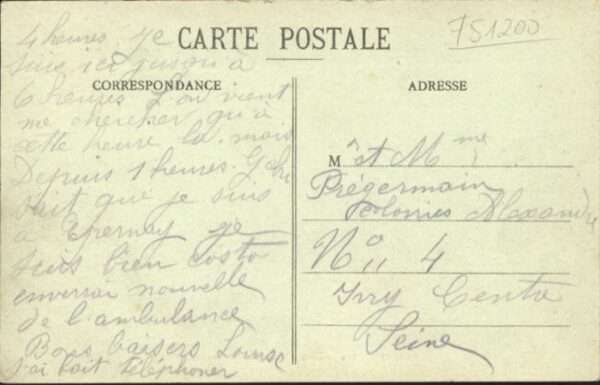 751200
CARTE POSTALE
CORRESPONDANCE
ADRESSE
4 heures je
suis ici jusqu'à
6 heures L'on vient
me chercher qu'à
cette heure la. mais
Depuis 1 heures.
que je suis
a Epernay je
suis bien
enverrai nouvelle
de l'ambulance
Bons baisers Louise
J'ai fait téléphoner
M et Mme
Prégermain
Colonies Alexandre
No 4
Ivry Centre
Seine